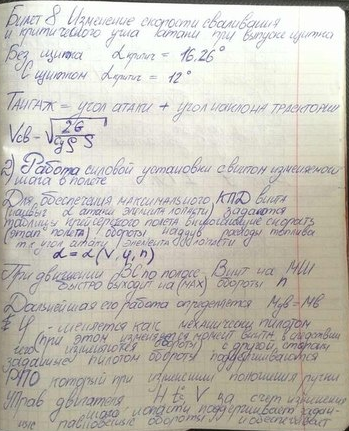 Билет 8 Изменение скорости сваливания
и критического угла атаки при выпуске щитка
Без щитка α критич = 16,26°
С щитком α критич = 12°
Тангаж = угол атаки + угол наклона траектории
Vсв = √2G/Cy ρ S
2) Работа силовой установки с винтом изменяемого
шага в полете
Для обеспечения максимального КПД винта
α атаки элемента лопасти) задаются
таблицы крейсерского полета скорость
(этап полета) обороты наддув расходы топлива
т.к угол атаки элемента лопасти
α = α(V, φ, n)
При движении ВС по полосе винт на МШ
быстро выходит на (MAX) обороты n
Дальнейшая его работа определяется Mдв = Mв
φ - меняется как механически пилотом
(при этом изменяется винта
изменяются обороты) с другой стороны
заданные пилотом обороты поддерживаются
РПО который при изменении положения ручки
Управ двигателя H t° V за счет изменения
шага лопасти поддерживает
обороты и обеспечивает